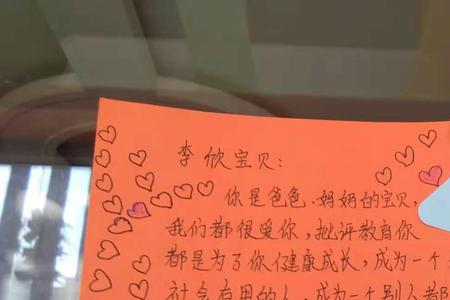 李欣宝贝：
你是爸爸、妈妈的宝贝，
我们都很爱你，批评教育你
都是为了你健康成长，成为一个
社会有用的人，成为一个别人都